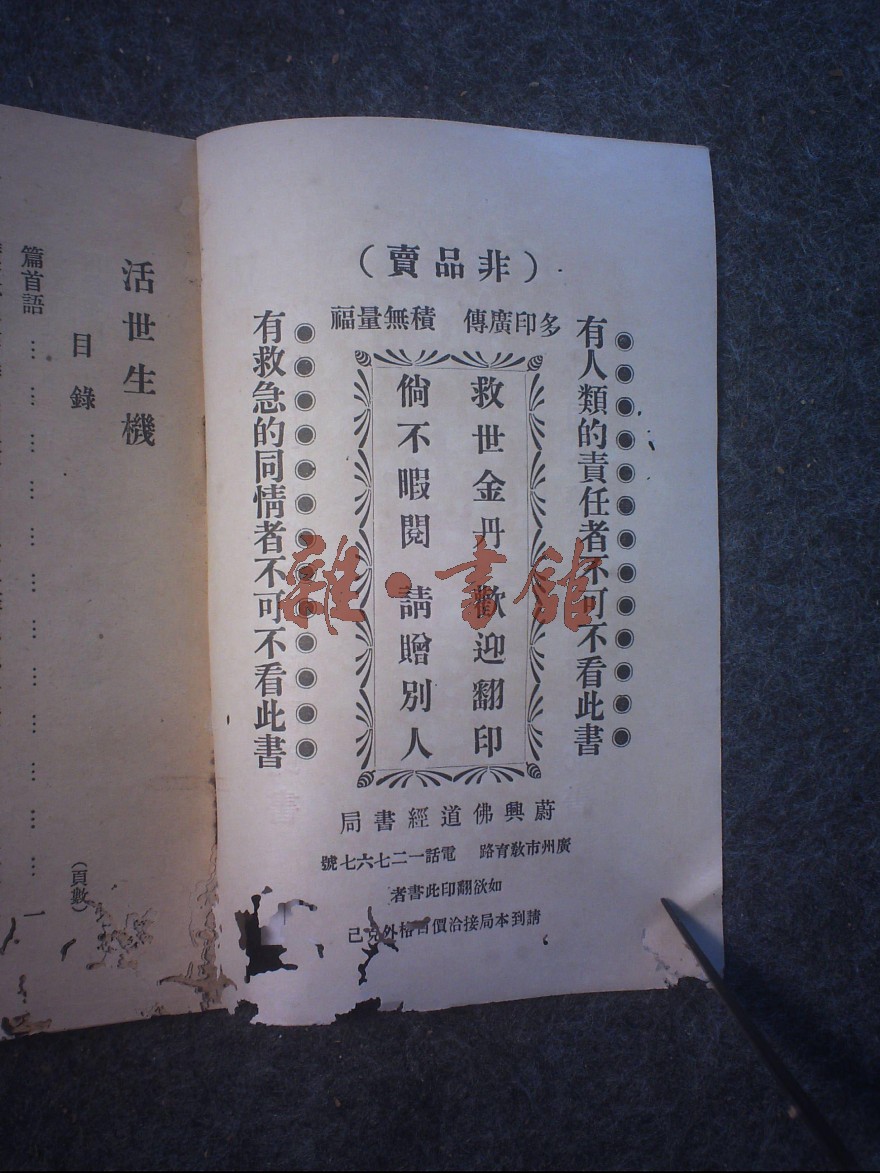 （非品賣）
多印廣傳　積無量福
有人類的責任者不可不看此書
救世金丹　歡迎翻印
倘不暇閱　請贈別人
有救急的同情者不可不看此書
蔚興佛道經書局
廣州市教育路　電話一二七六七號
如欲翻印此書者
請到本局接洽價格外克己
活世生機
目錄
篇首語………………………………（頁數）一
雜·書館